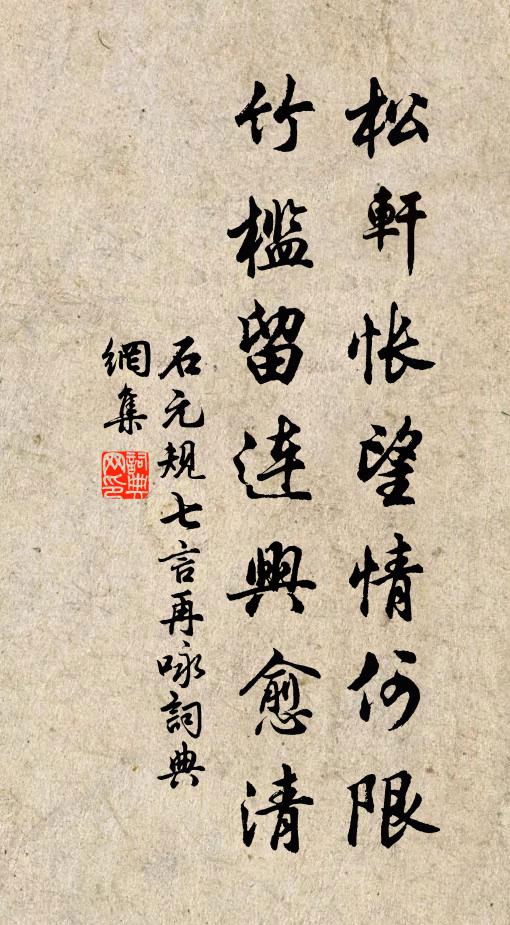 松軒悵望情何限
竹檻留连興愈清
石元規七言再咏詞典
網集
詞典
网印